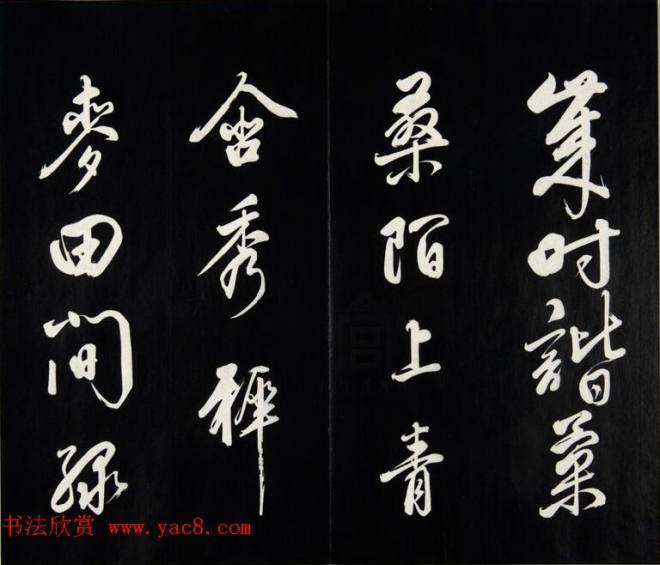 歲时諧葉
桑陌上青
含秀稺
麥田間綠
书法欣赏 www.yac8.com